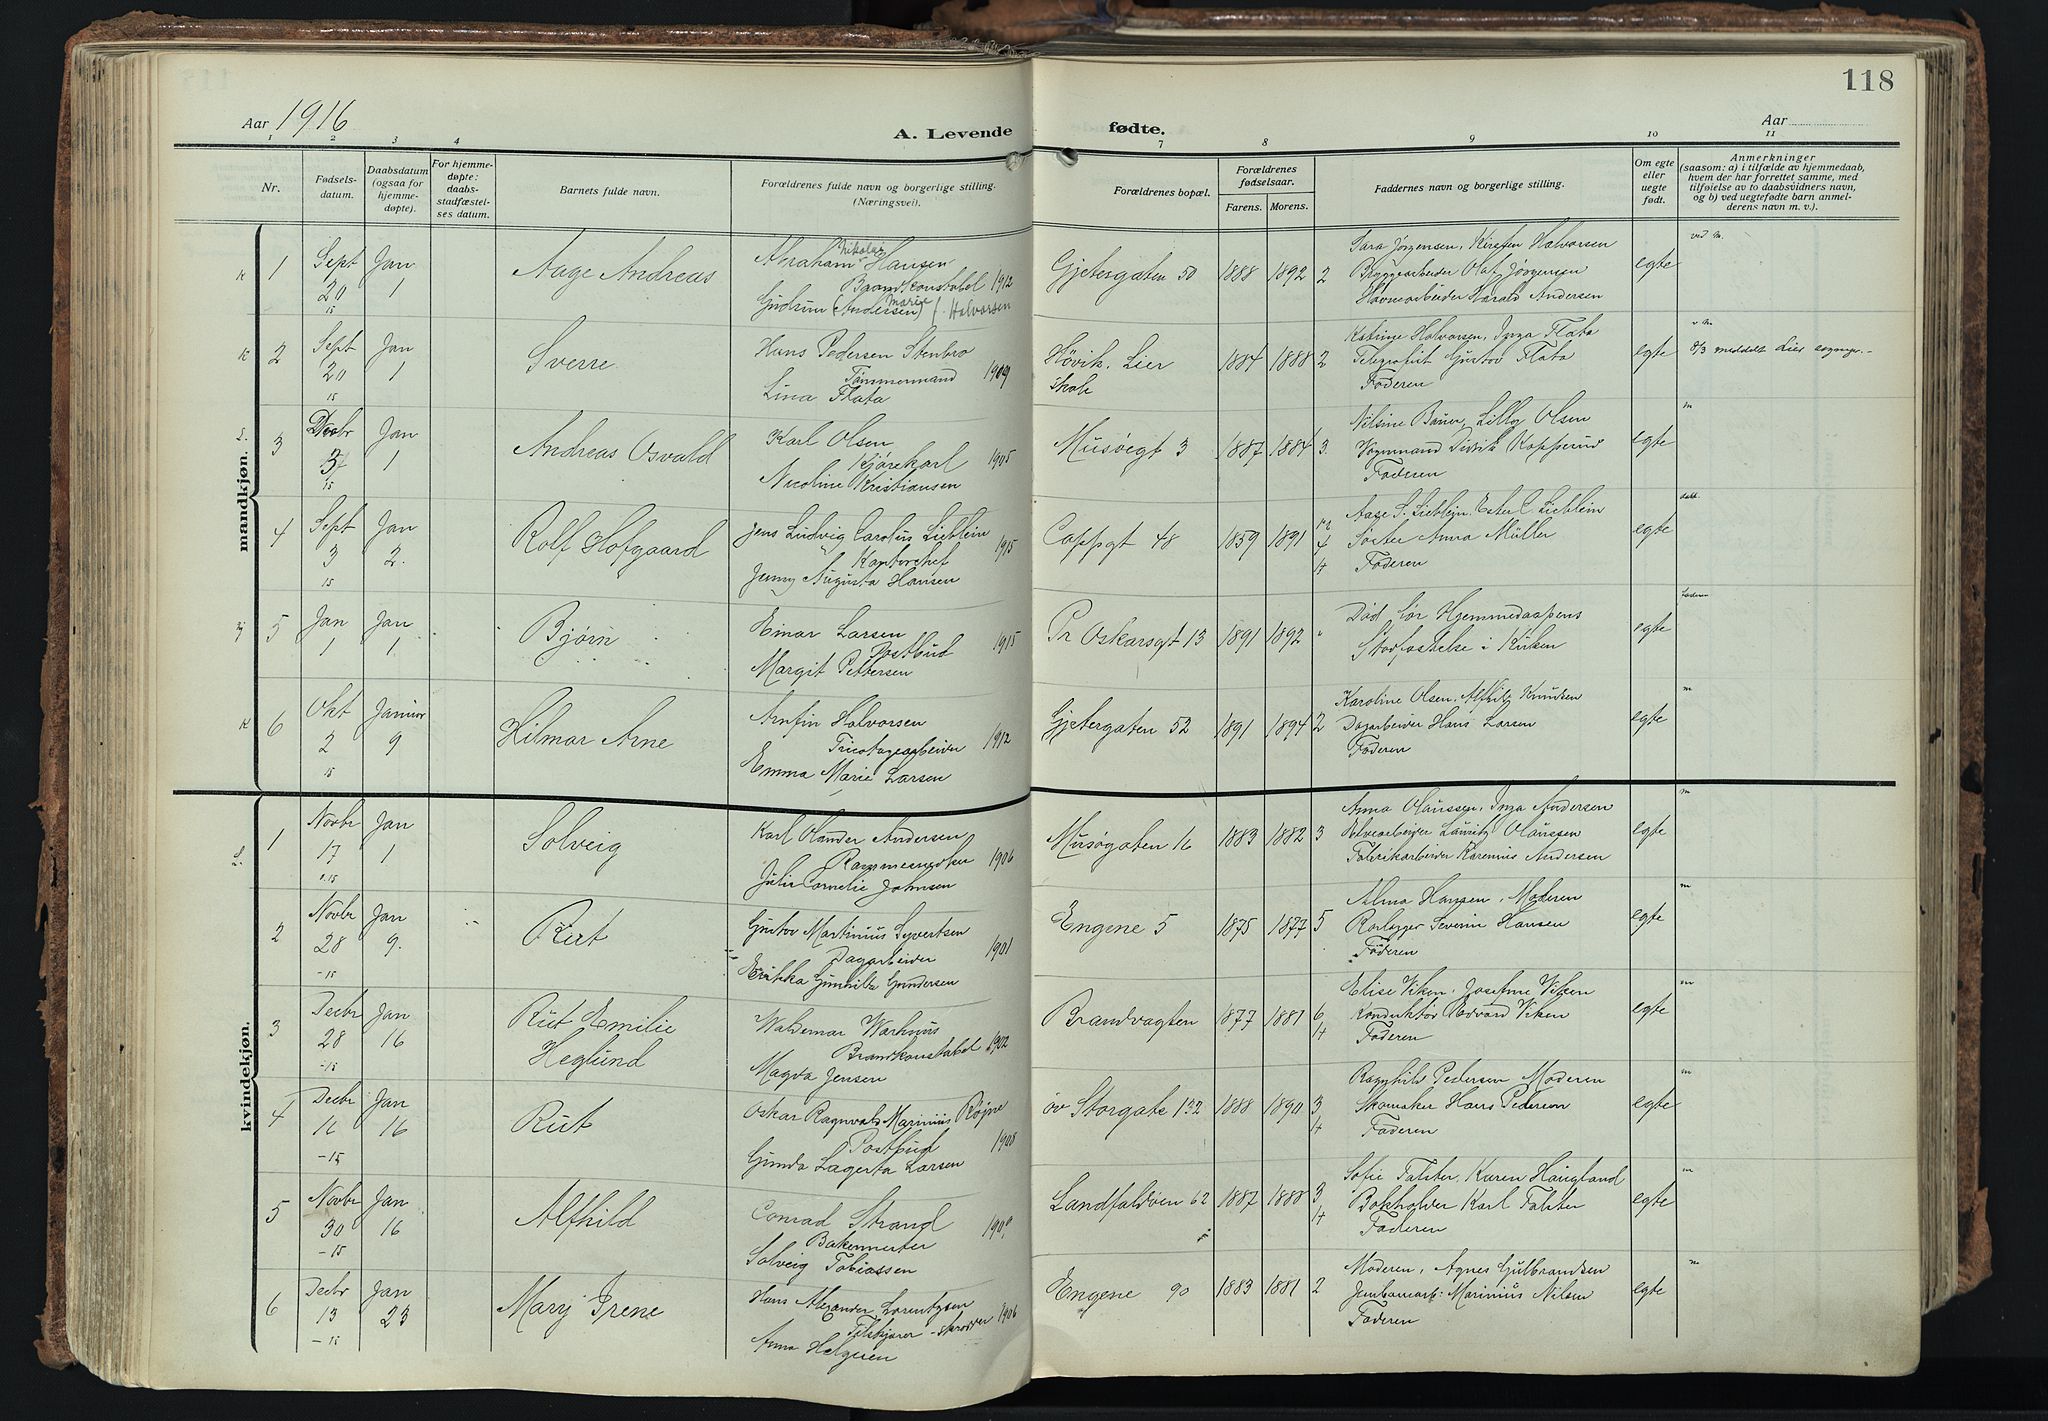 118
Aar 1916
A. Levende
fødte.
Aar
1 2 3 4
7 8 9 10 11
Nr.
Fødsels-
datum.
Daabsdatum
(ogsaa for
hjemme-
døpte).
For hjemme-
døpte:
daabs-
stadfæstel-
ses datum.
Barnets fulde navn.
Forældrenes fulde navn og borgerlige stilling.
(Næringsvei).
Forældrenes bopæl.
Forældrenes
fødselsaar.
Farens. Morens.
Faddernes navn og borgerlige stilling.
Om egte
eller
uegte
født.
Anmerkninger
(saasom: a) i tilfælde av hjemmedaab,
hvem der har forrettet samme, med
tilføielse av to daabsvidners navn,
og b) ved uegtefødte barn anmel-
derens navn m. v.).
mandkjøn.
K 1 Sept 20 15 Jan 1
Aage Andreas
Abraham Nikolai Hansen
Brandkonstabel 1912
Gudrun Marie (Andersen) f. Halvorsen
Gjetergaten 50 1888 1892 2
Sara Jørgensen, Kirsten Halvorsen
Byggearbeider Olaf Jørgensen
Havnearbeider Harald Andersen
egte
ved M.
K 2 Sept 20 15 Jan 1
Sverre
Hans Pedersen Stenbro
Tømmermand 1909
Lina Flata
Høvik, Lier
skole
1884 1888 2
Katrine Halvorsen, Inga Flata
Telegrafist Gustav Flata
Faderen
egte
v M
8/3 meddelt Lier sognepr.
L. 3 3 15 Jan 1
Andreas Osvald
Karl Olsen
Kjørekarl 1905
Nicoline Kristiansen
Musøegt 3 1887 1884 3.
Nilsine Bauer, Lilly Olsen
Vognmand Didrik Kopperud
Faderen
egte
m
4 Sept 3 15 Jan 2.
Rolf Hofgaard
Jens Ludvig Carolus Lieblein
Kontorchef 1915
Jenny Augusta Hansen
Cappgt 48 1859 1891
Aage S. Lieblein, Ester C. Lieblein
Søster Anna Müller
Faderen
egte
5 Jan 1 Jan 1.
Bjørn
Einar Larsen
Postbud 1915
Margit Pettersen
Pr Oskarsgt 13 1891 1892 "
Død før Hjemmedaapens
Stadfæstelse i Kirken
egte
Faderen
K 6 Okt 2 15 Januar 9
Hilmar Arne
Arnfin Halvorsen
Tricotagearbeider 1912
Emma Marie Larsen
Gjetergaten 52 1891 1894 2
Karoline Olsen, Alfhild Knudsen
Dagarbeider Hans Larsen
Faderen
egte
m
kvindekjøn.
L. 1 Novbr 17 15 Jan 1
Solveig
Karl Olander Andersen
Rammesnedker 1906
Julie Cornelie Johnsen
Musøgaten 16 1883 1882 3
Anna Olaussen, Inga Andersen
Elvearbeider Lauritz Olaussen
Fabrikarbeider Karenius Andersen
egte
m
2 Novbr 28 -15 Jan 9.
Rut
Gustav Martinius Syvertsen
Dagarbeider 1901
Erikka Gunhilda Gundersen
Engene 5 1875 1877 5
Alma Hansen, Moderen
Rørlægger Severin Hansen
Faderen
egte
m
3 Decbr 28 -15 Jan 16
Rut Emilie
Heglund
Waldemar Warhuus
Brandkonstabel 1902
Magda Jensen
Brandvagten 1877 1881 6
Elise Viken, Josefine Viken
Konduktør Edvard Viken
Faderen
egte
m
4 Decbr 16 -15 Jan 16
Rut
Oskar Ragnvald Marinius Røine
Postbud 1908
Gunda Lagerta Larsen
øv Storgate 132 1888 1890 3
Ragnhild Pedersen Moderen
Skomaker Hans Pedersen
Faderen
egte
m
5 Novbr 30 -15 Jan 16
Alfhild
Conrad Strand
Bakermester
Solveig Tobiassen
Landfaldøien 62 1887 1888 3
Sofie Falster, Karen Haugland
Bokholder Karl Falster
Faderen
egte
m
6 Decbr 13 -15 Jan 23
Mary Irene
Hans Alexander Lorentzen
Tilskjærer - skrædder 1906
Anna Helgesen
Engene 90 1883 1881 2
Moderen, Agnes Gulbrandsen
Jernbanearb: Marinius Nilsen
Faderen
egte
m